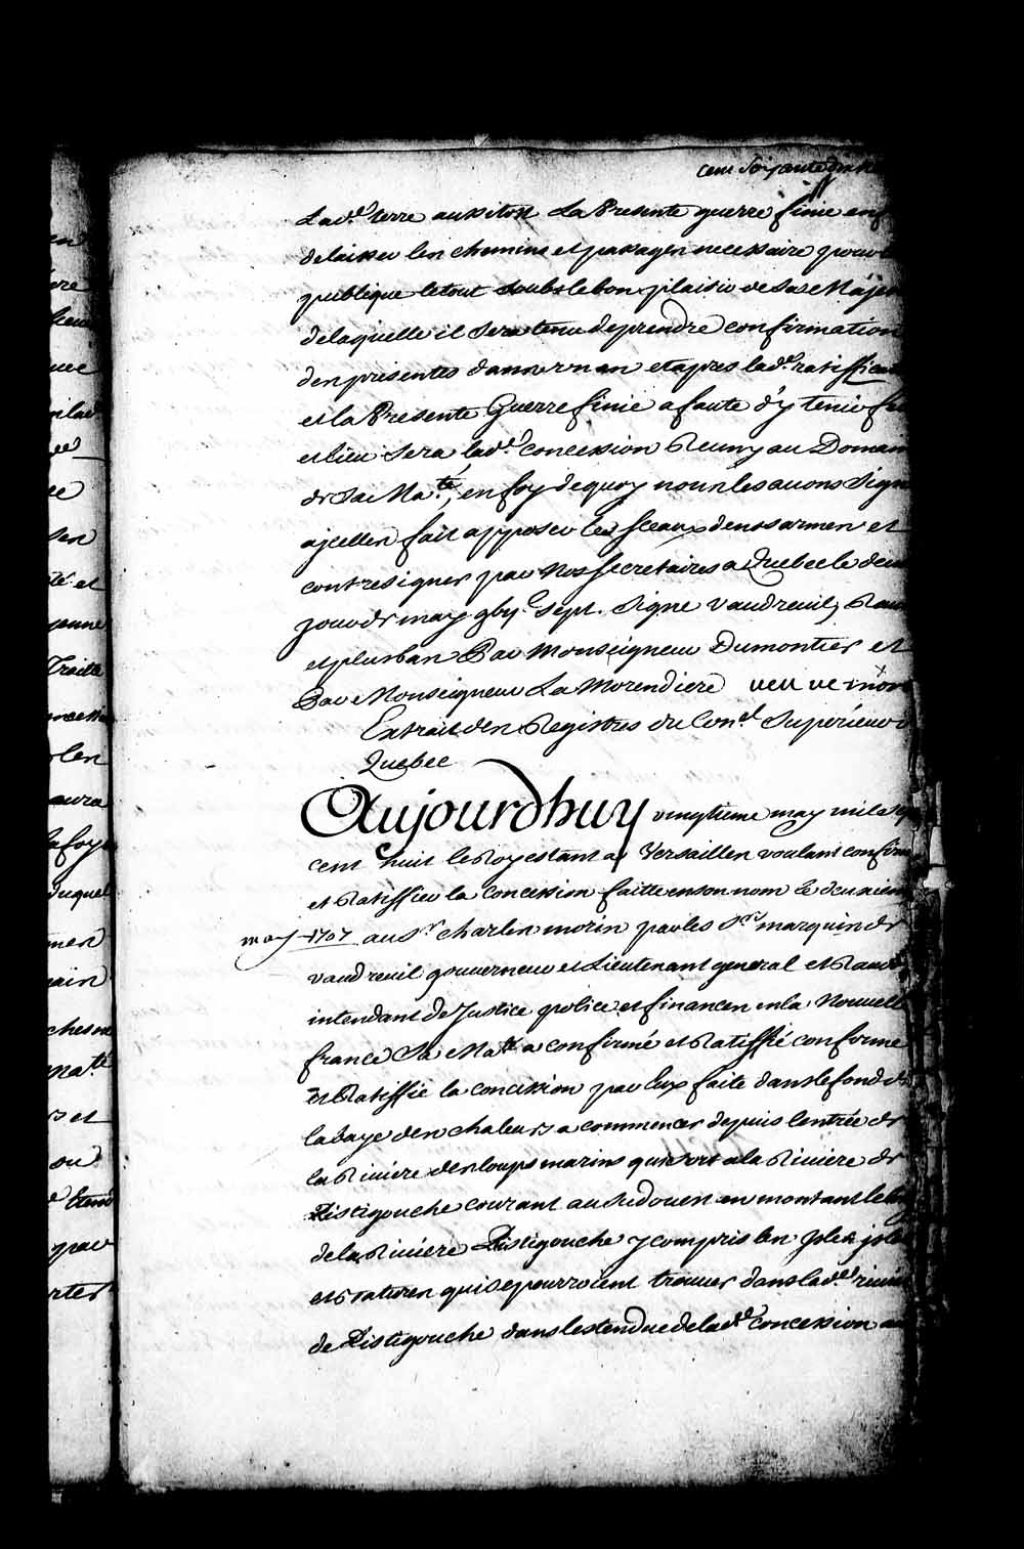 cent soixante
Lad.e terre aussitost La Presente guerre finie
delaisser les chemins et passages necessaire pour
publique letout soubs le bon plaisir de Sa Majes
delaquelle il sera tenu deprendre confirmation
des presentes dans un an et apres lad.e ratiffica
et la Presente Guerre finie a faute d'y tenir feu
et lieu sera lad.e concession Reuny au Domain
de Sa Ma.té, en foy dequoy nous les avons Sign
a jcelles fait apposer les sceaux denos armes et
contresigner par Nos secretaires a Quebec le deux
jour de may gbij.c sept. Signe Vaudreuil, Rau
et plus bas Par Monseigneur Dumontier et
Par Monseigneur La Morendiere
Extrait des Registres du Con.el Superieur
Quebec
Aujourdhuy vingtieme may mil sep
cent huit le Roy estant a Versailles voulant confirm
et Ratiffier la concession faitte en son nom le deuxiem
may 1707 au S.r charles morin par les S.rs marquis de
vaudreuil gouverneur et Lieutenant general et Raudot
intendant de Justice police et finances en la Nouvelle
france Sa Ma.té a confirmé et Ratiffié confirme
et Ratiffie la concession par Eux faite dans le fond de
la baye des chaleurs a commencer depuis lentrée de
la Riviere des loups marins qui sort a la Riviere de
Ristigouche courant au sudouest en montant le long
de la Riviere Ristigouche y compris les Isles jslets
et batures qui se pourroient trouver dans lad.e rivie
de Ristigouche dans lestendue de lad.e concession
en
née
lad
ce
sen
té et
Traitte
les
aura
foy
duquel
mes
main
chesne
Ma.té
rs et
ou
par
rter